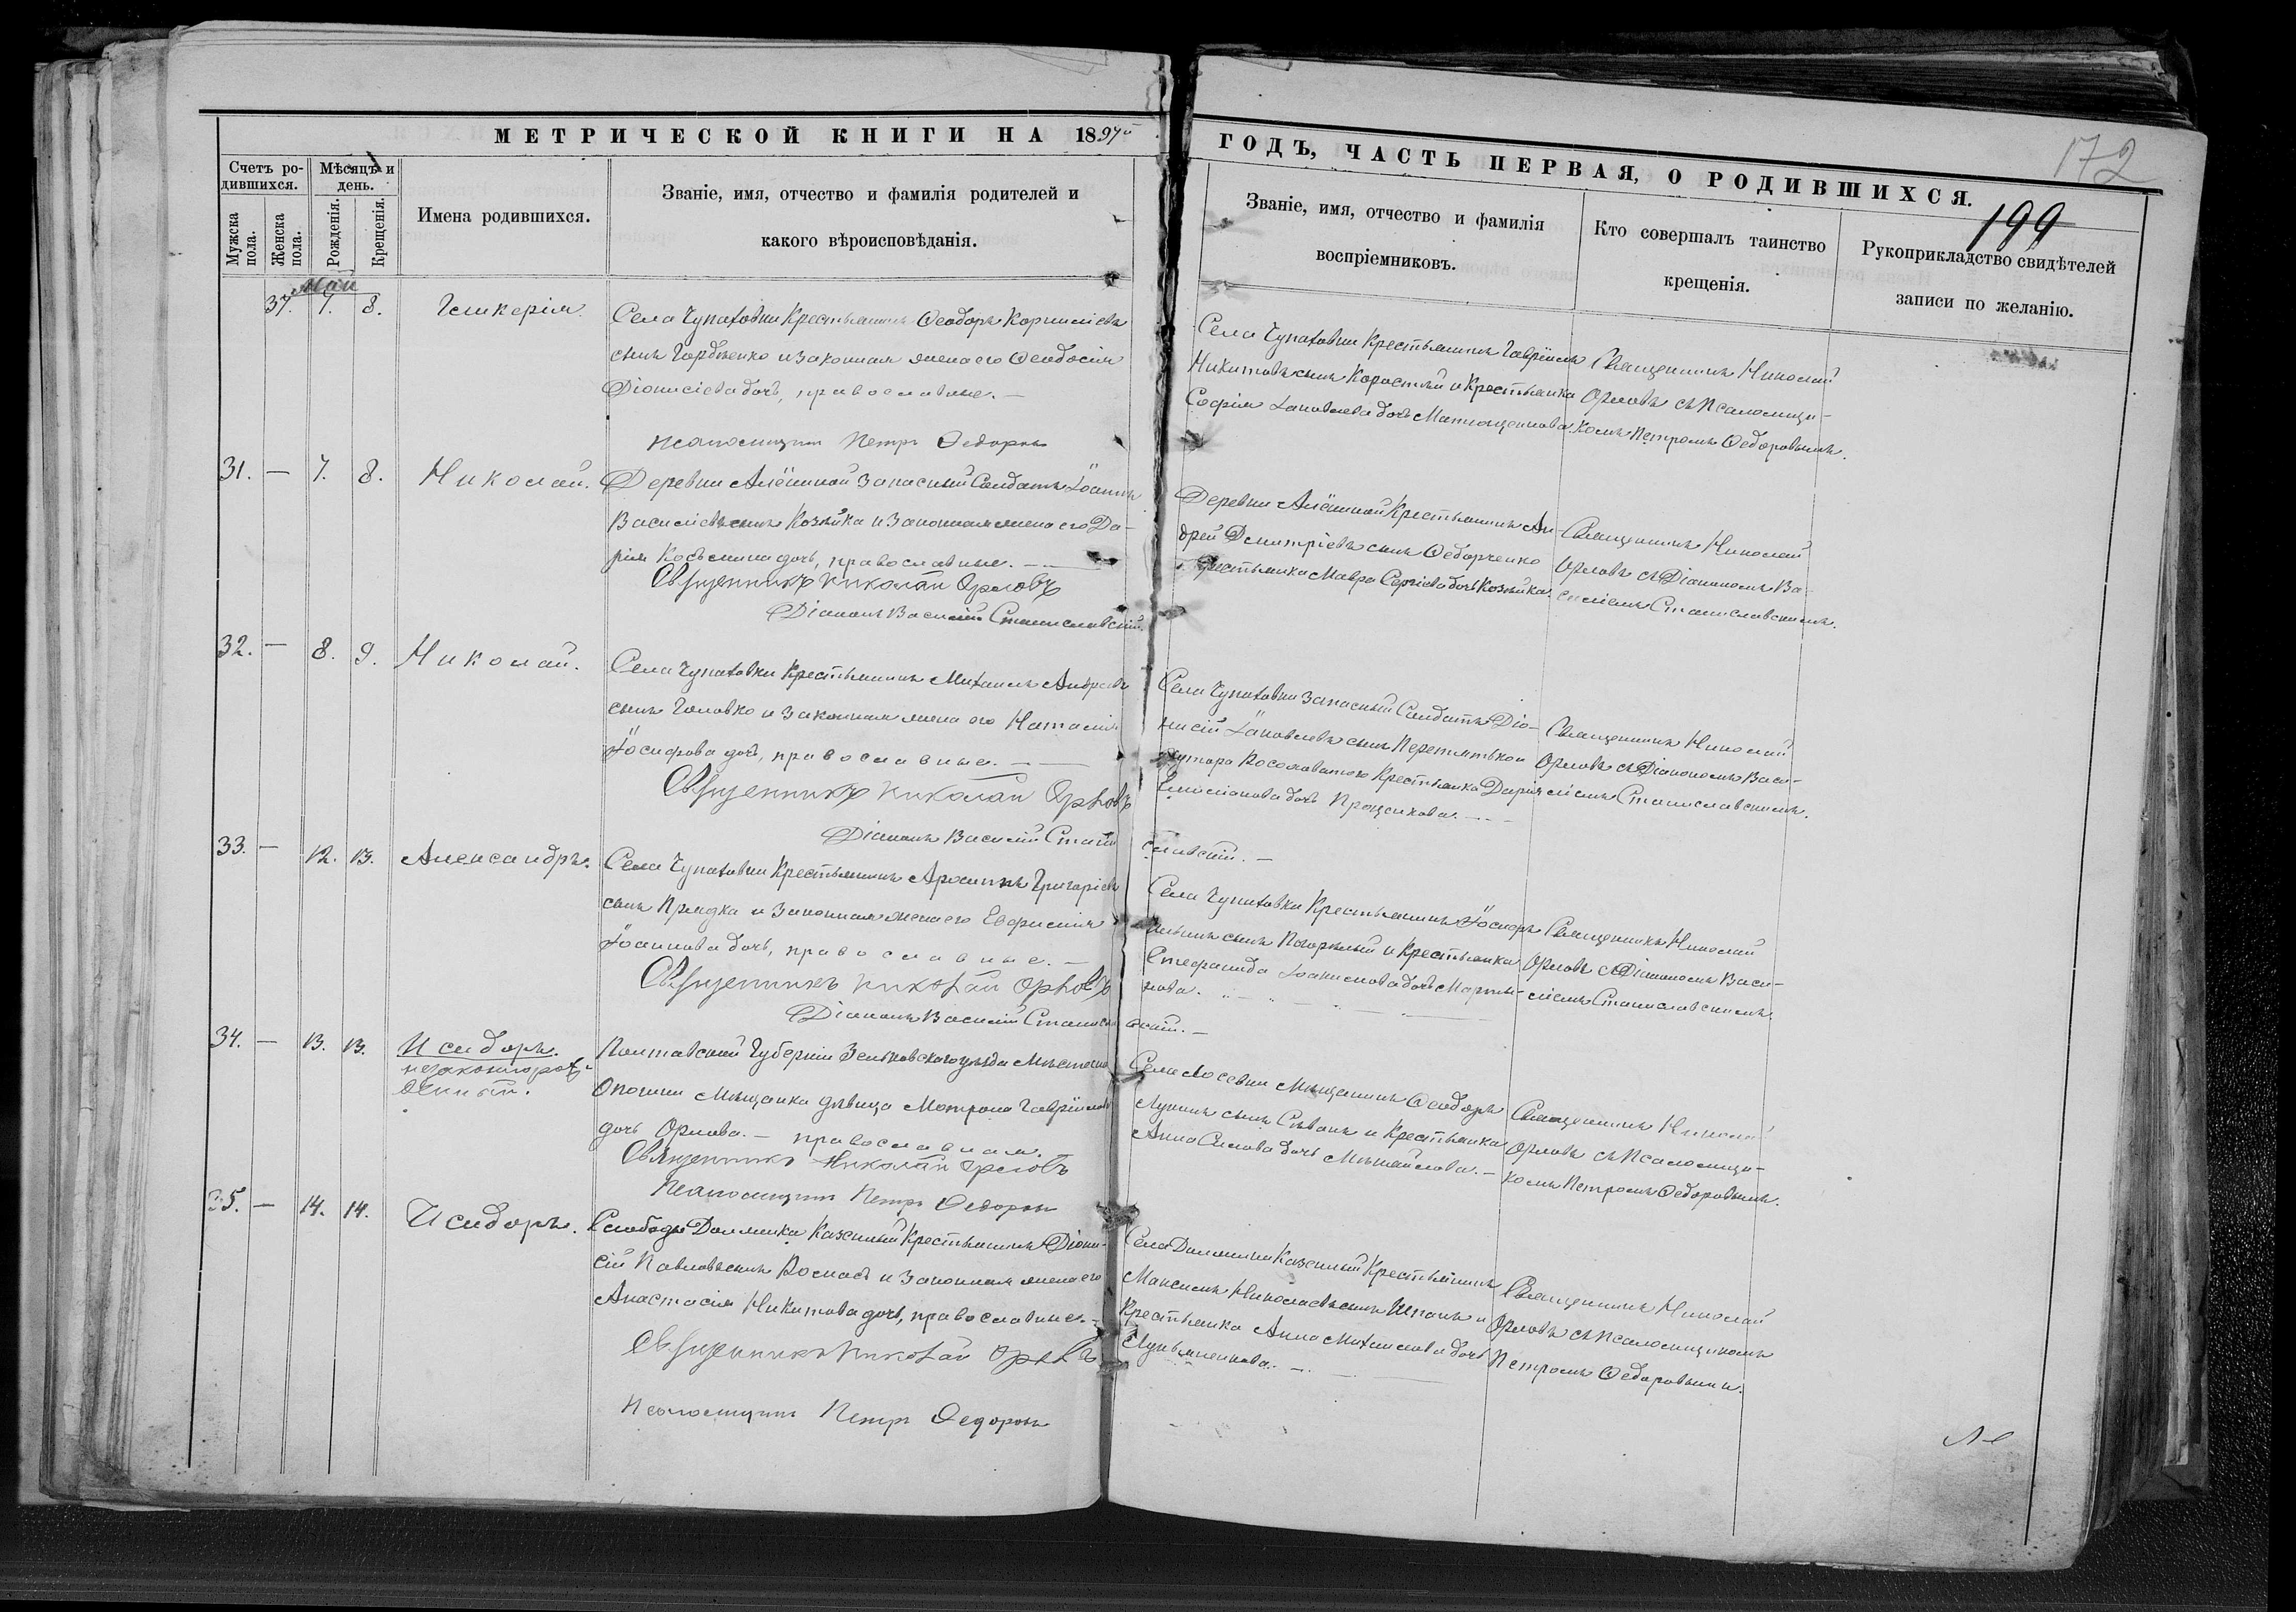 МЕТРИЧЕСКОЙ КНИГИ НА 1897й
ГОДЪ, ЧАСТЬ ПЕРВАЯ, О РОДИВШИХСЯ.
172
199
Счетъ ро-
дившихся.
Мужска
пола.
Женска
пола.
Мѣсяцъ и
день.
Рожденія.
Крещенія.
Имена родившихся.
Званіе, имя, отчество и фамилія родителей и
какого вѣроисповѣданія.
Званіе, имя, отчество и фамилія
воспріемниковъ.
Кто совершалъ таинство
крещенія.
Рукоприкладство свидѣтелей
записи по желанію.
Май
37. 7. 8.
Гликерія.
Села Чупаховки Крестьянинъ Ѳеодоръ Корниліевъ
сынъ и законная жена его Ѳеодосія
Діонисіева дочь, православные. —
Псаломщикъ Петръ Ѳедоровъ
Села Чупаховки Крестьянинъ Гавріилъ
Никитовъ сынъ Коростый и Крестьянка
Софія Іаковлева дочь
Священникъ Николай
Орловъ съ Псаломщи-
комъ Петромъ Ѳедоровымъ.
31. — 7. 8.
Николай.
Деревни Алёшиной Запасный Солдатъ Іоаннъ
Василіевъ сынъ Козѣйка и Законная жена его Да-
рія Косьмина дочь, православные. —
Священникъ Николай Орловъ
Діаконъ Василій Станиславскій.
Деревни Алёшиной Крестьянинъ Ан-
дрей Дмитріевъ сынъ Ѳедорченко
Крестьянка Мавра Сергіева дочь Козѣйка.
Священникъ Николай
Орловъ съ Діакономъ Ва-
силіемъ Станиславскимъ.
32. — 8. 9.
Николай.
Села Чупаховки Крестьянинъ Михаилъ Андреевъ
сынъ Головко и Законная жена его Наталія
Іосифова дочь, православные. —
Священникъ Николай Орловъ
Діаконъ Василій Стани
славскій. —
Села Чупаховки Запасный Солдатъ Діо-
нисій Іаковлевъ сынъ Перепятько и
хутора Росоховатого Крестьянка Дарія
Емиліанова дочь Проценкова. —
Священникъ Николай
Орловъ съ Діакономъ Васи-
ліемъ Станиславскимъ.
33. — 12. 13.
Александръ.
Села Чупаховки Крестьянинъ Григоріевъ
сынъ Прядка и Законная жена его Евфимія
Іоаннова дочь, православные. —
Священникъ Николай Орловъ
Діаконъ Василій Станисла
вскій. —
Села Чупаховки Крестьянинъ Іосифъ
сынъ Погорѣлый и Крестьянка
Стефанида дочь Марты-
нова. —
Священникъ Николай
Орловъ съ Діакономъ Васи-
ліемъ Станиславскимъ.
34. — 13. 13.
Исидоръ.
незаконнорож-
денный.
Полтавской Губерніи Зеньковскаго уѣзда Мѣстечка
Опошни Мѣщанка дѣвица Матрона Гавріилова
дочь Орлова. — православная.
Священникъ Николай Орловъ
Псаломщикъ Петръ Ѳедоровъ
Села Лосевки Мѣщанинъ Ѳеодоръ
Лукинъ сынъ и Крестьянка
Анна дочь Михайлова. —
Священникъ Николай
Орловъ съ Псаломщи-
комъ Петромъ Ѳедоровымъ.
35. — 14. 14.
Исидоръ.
Слободы Должика Казенный Крестьянинъ Діони-
сій Павловъ сынъ и Законная жена его
Анастасія Никитова дочь, православные. —
Священникъ Николай Орловъ
Псаломщикъ Петръ Ѳедоровъ
Села Казенный Крестьянинъ
Максимъ Николаевъ сынъ и
Крестьянка Анна Михаилова дочь
Лукьяненкова. —
Священникъ Николай
Орловъ съ Псаломщикомъ
Петромъ Ѳедоровымъ.